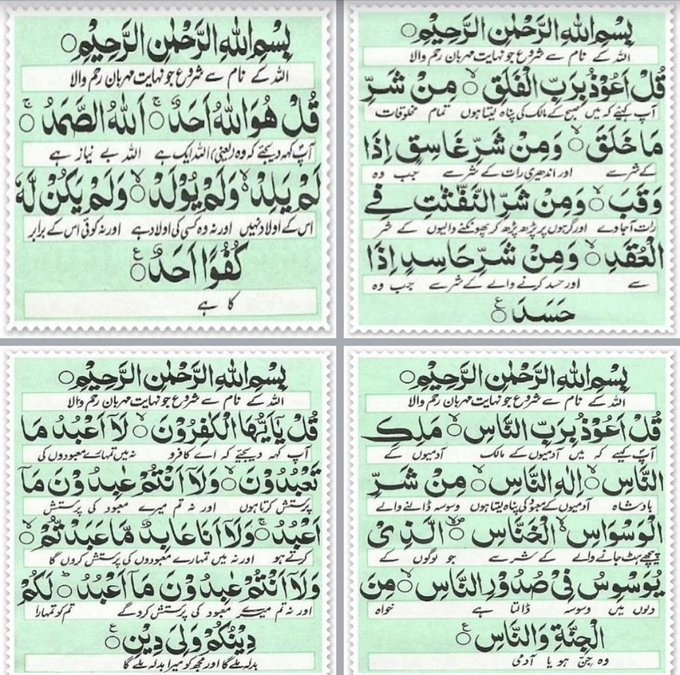 بِسْمِ اللّٰهِ الرَّحْمٰنِ الرَّحِيْمِ ○
اللہ کے نام سے شروع جو نہایت مہربان رحم والا
قُلْ هُوَ اللّٰهُ اَحَدٌ ○ اَللّٰهُ الصَّمَدُ ○
آپ کہہ دیجئے کہ وہ (یعنی) اللہ ایک ہے اللہ بے نیاز ہے
لَمْ يَلِدْ ○ وَلَمْ يُوْلَدْ ○ وَلَمْ يَكُنْ لَّهٗ
اس کے اولاد نہیں اور نہ وہ کسی کی اولاد ہے اور نہ کوئی اس کے برابر
كُفُوًا اَحَدٌ ○
کا ہے
بِسْمِ اللّٰهِ الرَّحْمٰنِ الرَّحِيْمِ ○
اللہ کے نام سے شروع جو نہایت مہربان رحم والا
قُلْ اَعُوْذُ بِرَبِّ الْفَلَقِ ○ مِنْ شَرِّ
آپ کہئے کہ میں صبح کے مالک کی پناہ لیتا ہوں تمام مخلوقات
مَا خَلَقَ ○ وَمِنْ شَرِّ غَاسِقٍ اِذَا
کے شر سے اور اندھیری رات کے شر سے جب وہ
وَقَبَ ○ وَمِنْ شَرِّ النَّفّٰثٰتِ فِي
رات آجاوے اور گرہوں پر پڑھ پڑھ کر پھونکنے والیوں کے شر
الْعُقَدِ ○ وَمِنْ شَرِّ حَاسِدٍ اِذَا
سے اور حسد کرنے والے کے شر سے جب وہ
حَسَدَ ○
بِسْمِ اللّٰهِ الرَّحْمٰنِ الرَّحِيْمِ ○
اللہ کے نام سے شروع جو نہایت مہربان رحم والا
قُلْ يٰٓاَيُّهَا الْكٰفِرُوْنَ ○ لَآ اَعْبُدُ مَا
آپ کہہ دیجئے کہ اے کافرو نہ میں تمہارے معبودوں کی
تَعْبُدُوْنَ ○ وَلَآ اَنْتُمْ عٰبِدُوْنَ مَآ
پرستش کرتا ہوں اور نہ تم میرے معبود کی پرستش
اَعْبُدُ ○ وَلَآ اَنَا عَابِدٌ مَّا عَبَدْتُّمْ ○
کرتے ہو اور نہ میں تمہارے معبودوں کی پرستش کروں گا
وَلَآ اَنْتُمْ عٰبِدُوْنَ مَآ اَعْبُدُ ○ لَكُمْ
اور نہ تم میرے معبود کی پرستش کروگے تم کو تمہارا
دِيْنُكُمْ وَلِيَ دِيْنِ ○
بدلہ ملے گا اور مجھ کو میرا بدلہ ملے گا
بِسْمِ اللّٰهِ الرَّحْمٰنِ الرَّحِيْمِ ○
اللہ کے نام سے شروع جو نہایت مہربان رحم والا
قُلْ اَعُوْذُ بِرَبِّ النَّاسِ ○ مَلِكِ
آپ کہیے کہ میں آدمیوں کے مالک آدمیوں کے
النَّاسِ ○ اِلٰهِ النَّاسِ ○ مِنْ شَرِّ
بادشاہ آدمیوں کے معبود کی پناہ لیتا ہوں وسوسہ ڈالنے والے
الْوَسْوَاسِ الْخَنَّاسِ ○ الَّذِيْ
پیچھے ہٹ جانے والے کے شر سے جو لوگوں کے
يُوَسْوِسُ فِيْ صُدُوْرِ النَّاسِ ○ مِنَ
دلوں میں وسوسہ ڈالتا ہے خواہ
الْجِنَّةِ وَالنَّاسِ ○
وہ جن ہو یا آدمی